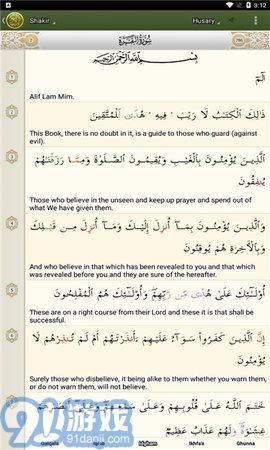 3:12
Shakir
Husary
سُورَةُ الْبَقَرَةِ
بِسْمِ اللَّهِ الرَّحْمَٰنِ الرَّحِيمِ
1
الٓمٓ
Alif Lam Mim.
2
ذَٰلِكَ الْكِتَابُ لَا رَيْبَ ۛ فِيهِ ۛ هُدًى لِّلْمُتَّقِينَ
This Book, there is no doubt in it, is a guide to those who guard (against
evil).
3
الَّذِينَ يُؤْمِنُونَ بِالْغَيْبِ وَيُقِيمُونَ الصَّلَوٰةَ وَمِمَّا رَزَقْنَٰهُمْ
يُنفِقُونَ
Those who believe in the unseen and keep up prayer and spend out
of what We have given them.
4
وَالَّذِينَ يُؤْمِنُونَ بِمَآ أُنزِلَ إِلَيْكَ وَمَآ أُنزِلَ مِن قَبْلِكَ
وَبِالْآخِرَةِ هُمْ يُوقِنُونَ
And who believe in that which has been revealed to you and that which
was revealed before you and they are sure of the hereafter.
5
أُو۟لَٰٓئِكَ عَلَىٰ هُدًى مِّن رَّبِّهِمْ ۖ وَأُو۟لَٰٓئِكَ هُمُ الْمُفْلِحُونَ
These are on a right course from their Lord and these it is that shall be
successful.
6
إِنَّ الَّذِينَ كَفَرُوا۟ سَوَآءٌ عَلَيْهِمْ ءَأَنذَرْتَهُمْ أَمْ لَمْ تُنذِرْهُمْ لَا
يُؤْمِنُونَ
Surely those who disbelieve, it being alike to them whether you warn them,
or do not warn them, will not believe.
خَتَمَ اللَّهُ عَلَىٰ قُلُوبِهِمْ وَعَلَىٰ سَمْعِهِمْ ۖ وَعَلَىٰٓ أَبْصَٰرِهِمْ
غِشَٰوَةٌ ۖ وَلَهُمْ عَذَابٌ عَظِيمٌ
Qalqala
Idgham
Ikhfa'a
Ghunna
91游戏
www.91danji.com